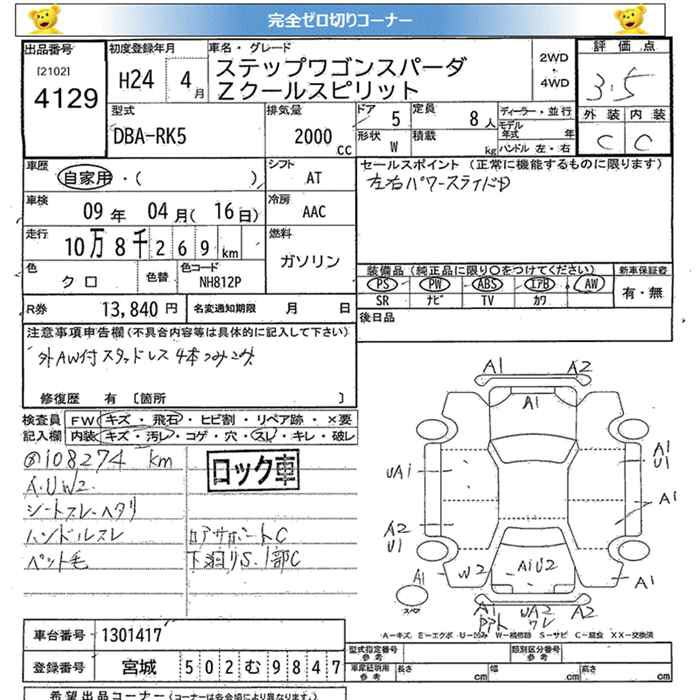 完全ゼロ切りコーナー
出品番号 初度登録年月 車名・グレード 2WD・4WD 評価点
[2102] 4129 H24 4月 ステップワゴンスパーダ 3.5
Zクールスピリット
型式 排気量 ドア 5 定員 8人 ディーラー・並行 外装 内装
DBA-RK5 2000cc 形状 W 積載 kg モデル年式 年 C C
ハンドル 左・右
車歴 シフト セールスポイント (正常に機能するものに限ります)
自家用・( ) AT 左右パワースライドD
車検 冷房
09年 04月(16日) AAC
走行 燃料
10万8千269km ガソリン
色 色替 色コード 装備品 (純正品に限り○をつけてください) 新車保証書
クロ NH812P PS PW ABS エアB AW 有・無
SR ナビ TV カワ
R券 13,840円 名変通知期限 月 日 後日品
注意事項申告欄 (不具合内容等は具体的に記入して下さい)
外AW付スタッドレス4本つみこみ
修復歴 有〔箇所 〕
検査員 FW キズ・飛石・ヒビ割・リペア跡・×要
記入欄 内装 キズ・汚レ・コゲ・穴・スレ・キレ・破レ
108274 km ロック車
A.U W2
シートスレ・ヘタリ
ハンドルスレ リアサポートC
ペット毛 下廻りS.1部C
A1 A2
A1
UA1 A1 U1
A1
A2 U1
A1 W2 A1U2 A1
スペア
A1 UA2 A2
ワレ
A-キズ E-エクボ U-凹み W-補修跡 S-サビ C-腐食 XX-交換済
車台番号 1301417
登録番号 宮城 502 む 9847
型式指定番号 参考 類別区分番号 参考
車庫証明用 参考 長さ cm 幅 cm 高さ cm
希望出品コーナー